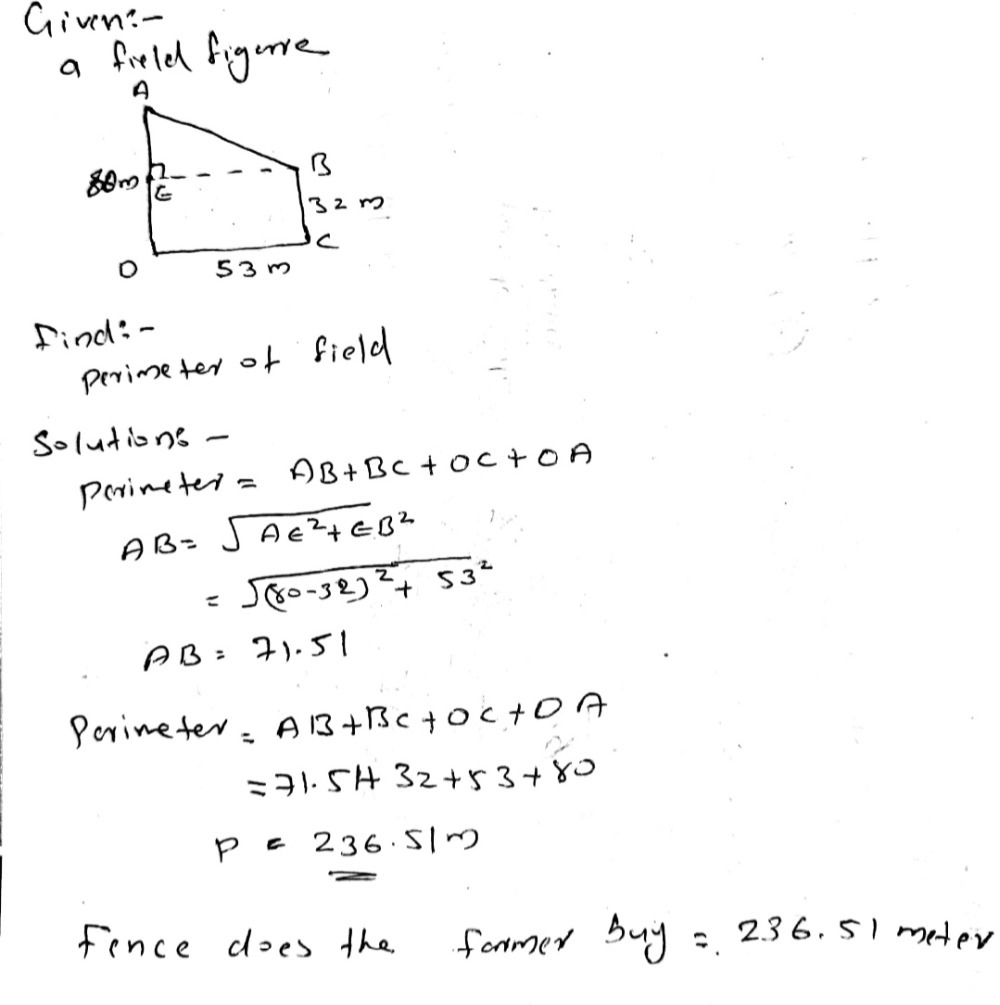 Given:-
a field figure
A
80m
E
B
32 m
C
D
53 m
Find:-
perimeter of field
Solutions -
Perimeter = AB+BC+DC+DA
AB= √AE²+EB²
= √(80-32)²+ 53²
AB= 71.51
Perimeter = AB+BC+DC+DA
=71.51+32+53+80
P = 236.51m
Fence does the farmer buy = 236.51 meter